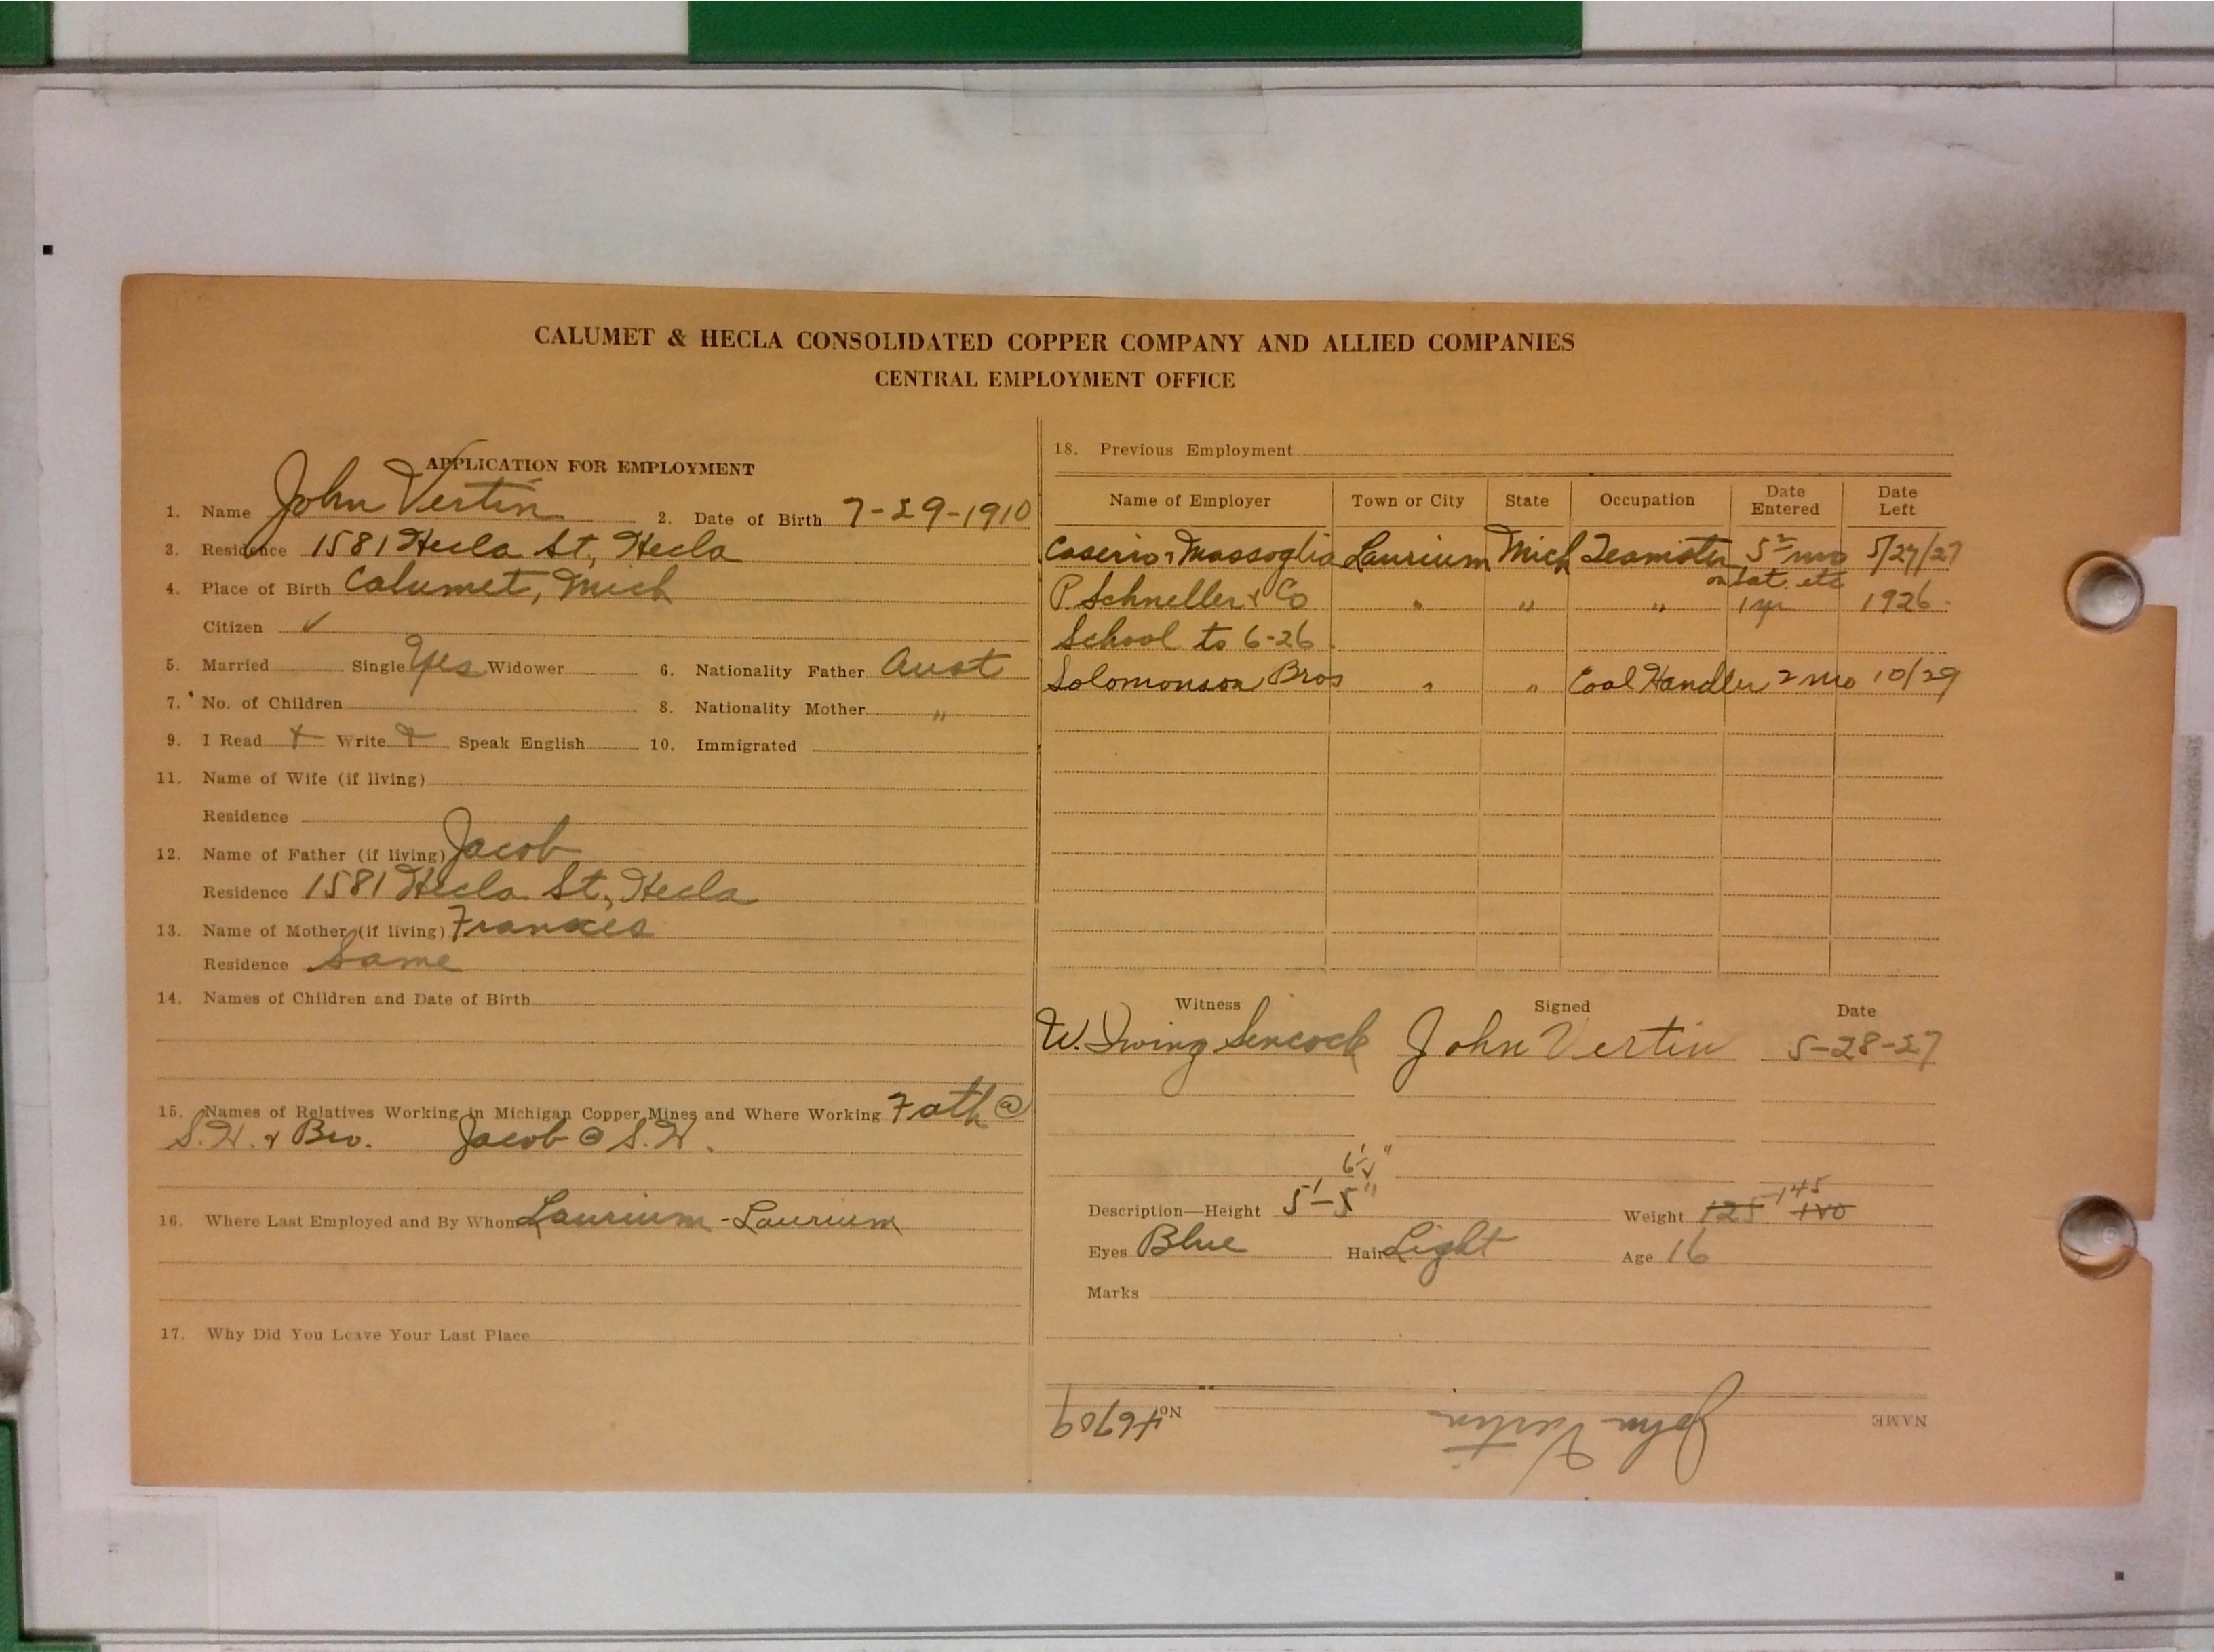 CALUMET & HECLA CONSOLIDATED COPPER COMPANY AND ALLIED COMPANIES
CENTRAL EMPLOYMENT OFFICE
APPLICATION FOR EMPLOYMENT
1. Name John Vertin 2. Date of Birth 7-29-1910
3. Residence 1581 Hecla St, Hecla
4. Place of Birth Calumet, Mich
Citizen ✓
5. Married Single Yes Widower 6. Nationality Father Aust
7. No. of Children 8. Nationality Mother "
9. I Read + Write + Speak English 10. Immigrated
11. Name of Wife (if living)
Residence
12. Name of Father (if living) Jacob
Residence 1581 Hecla St, Hecla
13. Name of Mother (if living) Frances
Residence Same
14. Names of Children and Date of Birth
15. Names of Relatives Working in Michigan Copper Mines and Where Working Fath @
S.H. & Bro. Jacob @ S.H.
16. Where Last Employed and By Whom Laurium - Laurium
17. Why Did You Leave Your Last Place
18. Previous Employment
Name of Employer Town or City State Occupation Date Entered Date Left
Caserio & Massoglia Laurium Mich Teamster 5 mo 5/27/27
on Sat. etc
P. Schneller & Co " " " 1 yr 1926
School to 6-26
Solomonson Bros " " Coal Handler 2 mo 10/29
Witness Signed Date
W. Irving Sencock John Vertin 5-28-27
Description—Height 5'-5" Weight 125 145
Eyes Blue Hair Light Age 16
Marks
NAME John Vertin No. 46709